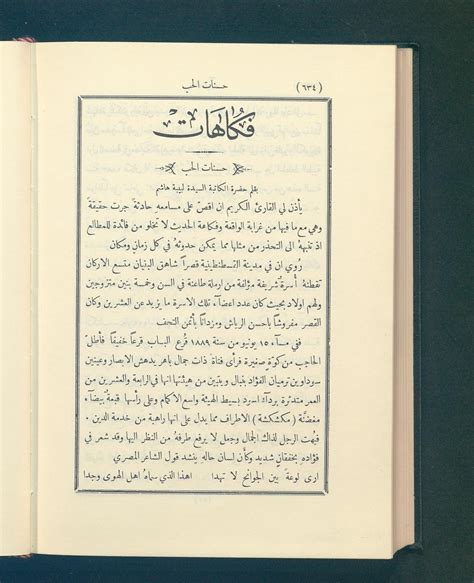 (٦٣٤) حسنات الحب
فكاهات
حسنات الحب
بقلم حضرة الكاتبة السيدة لبيبة هاشم
يأذن لي القارئ الكريم ان اقصّ على مسامعهِ حادثة جرت حقيقة
وهي مع ما فيها من غرابة الواقعة وفكاهة الحديث لا تخلو من فائدة للمطالع
اذ تنبههُ الى التحذر من مثلها مما يمكن حدوثهُ في كل زمان ومكان
رُوي ان في مدينة القسطنطينية قصراً شاهق البنيان متسع الاركان
تقطنهُ أسرة شريفة مؤلفة من ارملة طاعنة في السن وخمسة بنين متزوجين
ولهم اولاد بحيث كان عدد اعضاء تلك الاسرة ما يزيد عن العشرين وكان
القصر مفروشاً باحسن الرياش ومزداناً بأثمن التحف
ففي مساء ١٥ يونيو من سنة ١٨٨٩ قُرع الباب قرعاً خفيفاً فأطلّ
الحاجب من كوة صغيرة فرأى فتاة ذات جمال باهر يدهش الابصار وعينين
سوداوين ترميان الفؤاد بنبال ويتبين من هيئتها انها في الرابعة والعشرين من
العمر متدثرة برداء اسود بسيط الهيئة واسع الاكمام وعلى رأسها قبعة بيضاء
مغضّنة (مكشكشة) الاطراف مما يدل على انها راهبة من خدمة الدين.
فبُهت الرجل لذاك الجمال وجعل لا يرفع طرفهُ من النظر اليها وقد شعر في
فؤاده بخفقان شديد وكأن لسان حاله ينشد قول الشاعر المصري
ارى لوعة بين الجوانح لا تهدا اهذا الذي سماهُ اهل الهوى وجدا